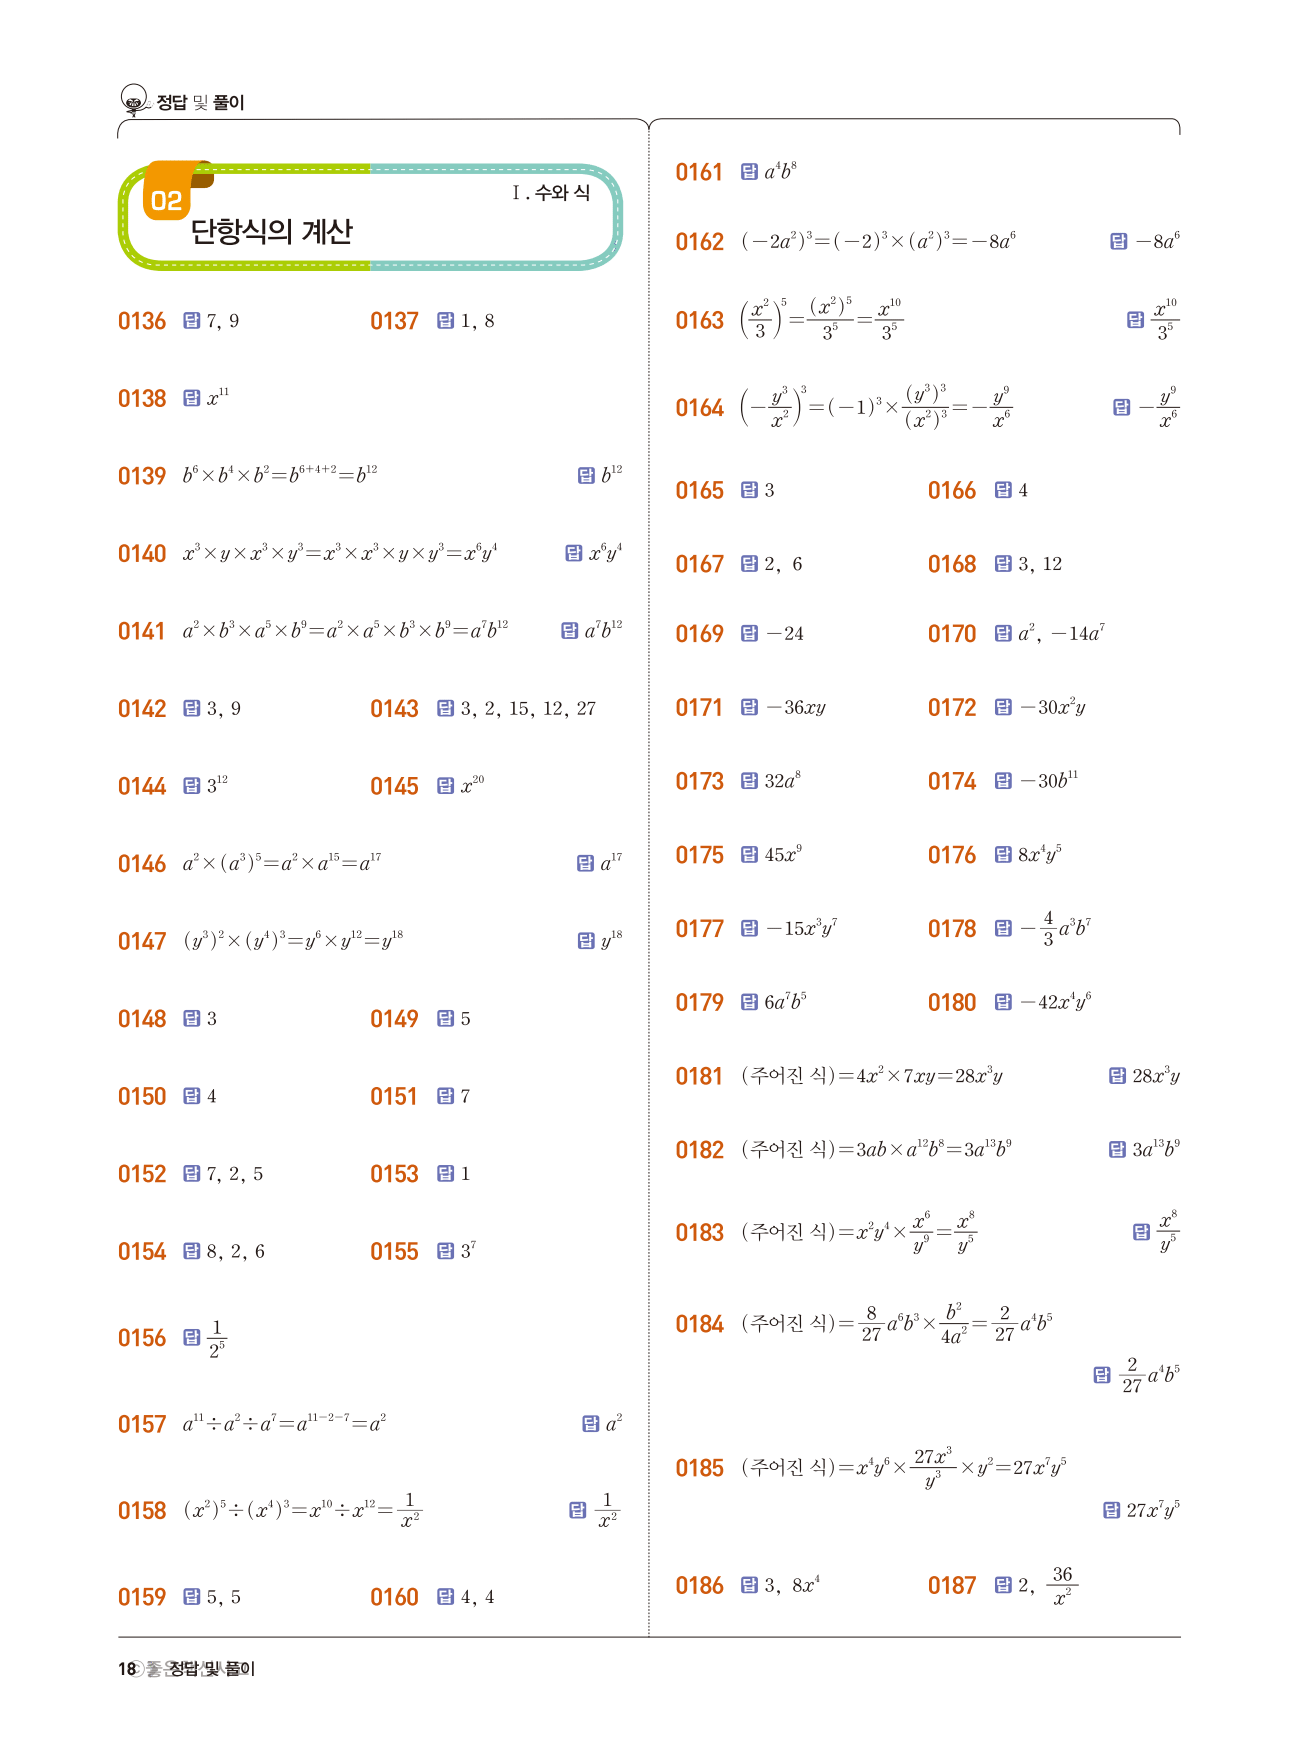 정답 및 풀이
02
Ⅰ. 수와 식
단항식의 계산
0136 답 7, 9 0137 답 1, 8
0138 답 x¹¹
0139 b⁶×b⁴×b²=b⁶⁺⁴⁺²=b¹² 답 b¹²
0140 x³×y×x³×y³=x³×x³×y×y³=x⁶y⁴ 답 x⁶y⁴
0141 a²×b³×a⁵×b⁹=a²×a⁵×b³×b⁹=a⁷b¹² 답 a⁷b¹²
0142 답 3, 9 0143 답 3, 2, 15, 12, 27
0144 답 3¹² 0145 답 x²⁰
0146 a²×(a³)⁵=a²×a¹⁵=a¹⁷ 답 a¹⁷
0147 (y³)²×(y⁴)³=y⁶×y¹²=y¹⁸ 답 y¹⁸
0148 답 3 0149 답 5
0150 답 4 0151 답 7
0152 답 7, 2, 5 0153 답 1
0154 답 8, 2, 6 0155 답 3⁷
0156 답 1/2⁵
0157 a¹¹÷a²÷a⁷=a¹¹⁻²⁻⁷=a² 답 a²
0158 (x²)⁵÷(x⁴)³=x¹⁰÷x¹²=1/x² 답 1/x²
0159 답 5, 5 0160 답 4, 4
0161 답 a⁴b⁸
0162 (−2a²)³=(−2)³×(a²)³=−8a⁶ 답 −8a⁶
0163 (x²/3)⁵=(x²)⁵/3⁵=x¹⁰/3⁵ 답 x¹⁰/3⁵
0164 (−y³/x²)³=(−1)³×(y³)³/(x²)³=−y⁹/x⁶ 답 −y⁹/x⁶
0165 답 3 0166 답 4
0167 답 2, 6 0168 답 3, 12
0169 답 −24 0170 답 a², −14a⁷
0171 답 −36xy 0172 답 −30x²y
0173 답 32a⁸ 0174 답 −30b¹¹
0175 답 45x⁹ 0176 답 8x⁴y⁵
0177 답 −15x³y⁷ 0178 답 −4/3a³b⁷
0179 답 6a⁷b⁵ 0180 답 −42x⁴y⁶
0181 (주어진 식)=4x²×7xy=28x³y 답 28x³y
0182 (주어진 식)=3ab×a¹²b⁸=3a¹³b⁹ 답 3a¹³b⁹
0183 (주어진 식)=x²y⁴×x⁶/y⁹=x⁸/y⁵ 답 x⁸/y⁵
0184 (주어진 식)=8/27a⁶b³×b²/4a²=2/27a⁴b⁵
답 2/27a⁴b⁵
0185 (주어진 식)=x⁴y⁶×27x³/y³×y²=27x⁷y⁵
답 27x⁷y⁵
0186 답 3, 8x⁴ 0187 답 2, 36/x²
18 정답 및 풀이